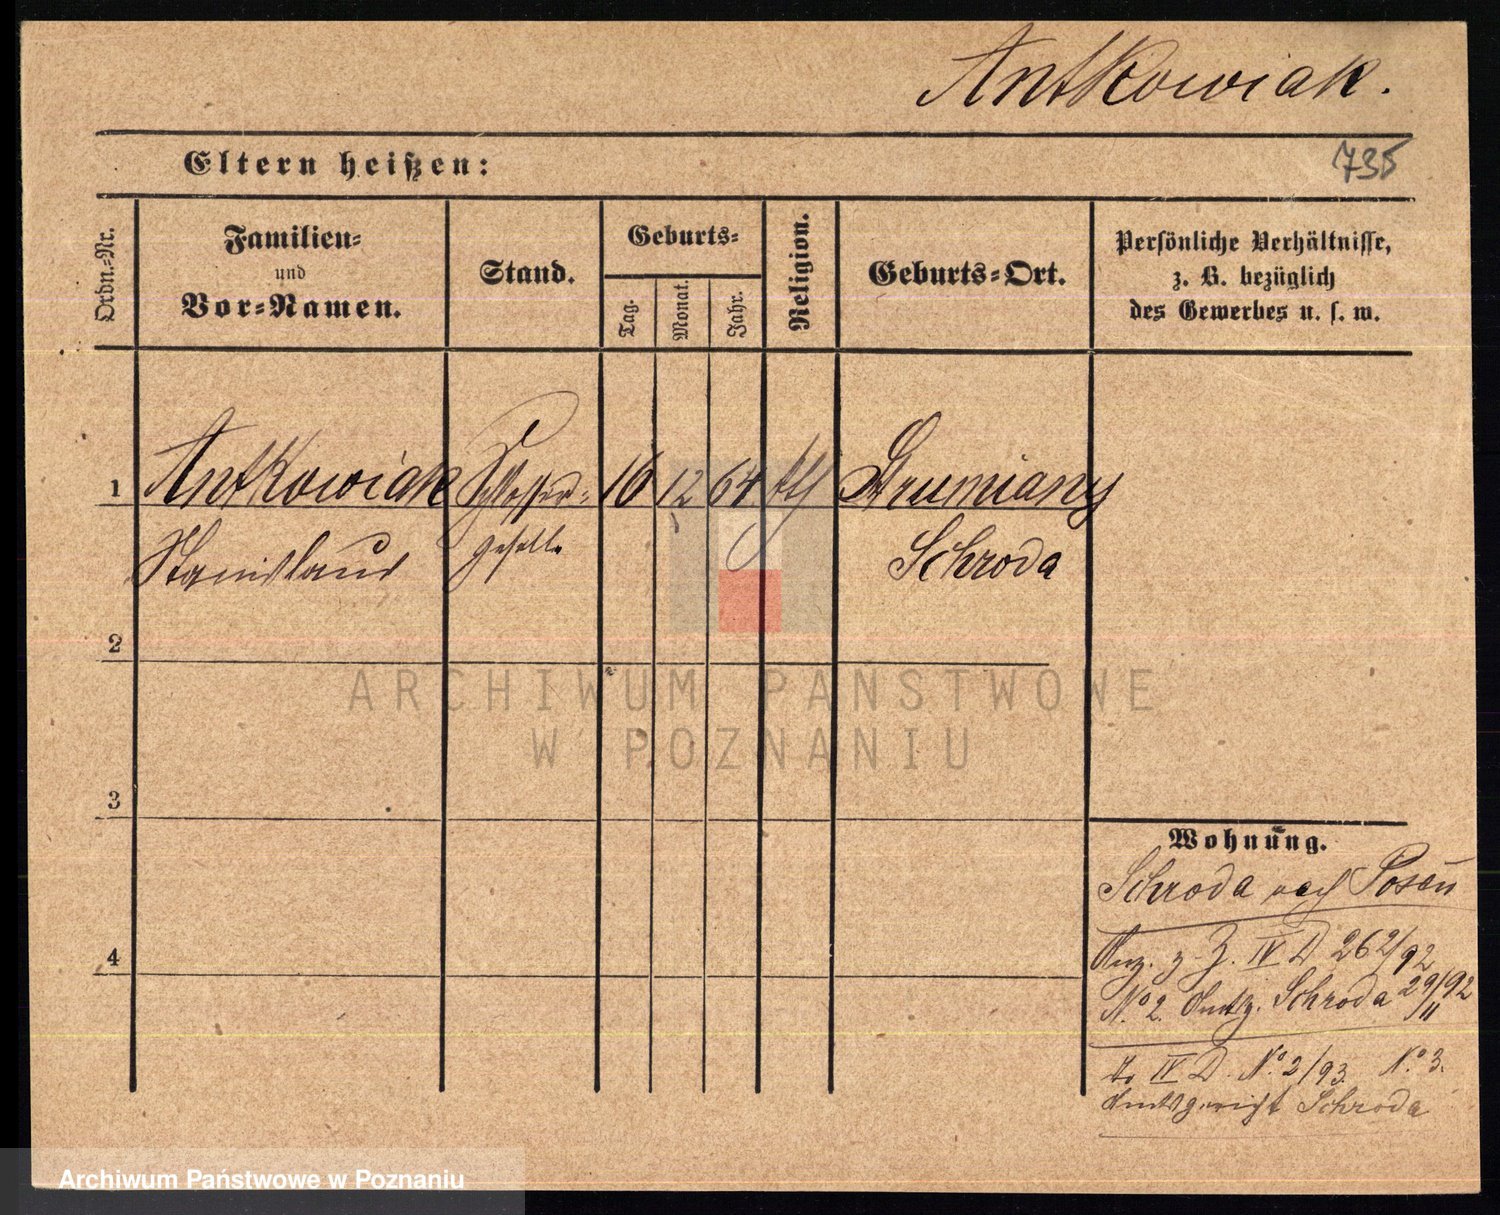 Antkowiak.
735
Eltern heißen:
Ordn.-Nr.
Familien-
und
Vor-Namen.
Stand.
Geburts-
Tag.
Monat.
Jahr.
Religion.
Geburts-Ort.
Persönliche Verhältnisse,
z. B. bezüglich
des Gewerbes u. s. w.
1
Antkowiak
Schlosser-
16
12
64
Drumiany
Stanislaus
geselle
Schroda
2
ARCHIWUM PAŃSTWOWE
W POZNANIU
3
4
Wohnung.
Schroda nach Posen
z. Z. IV D 262/92
No 2. Amtsg. Schroda 29/11 92
IV D No 2/93. No 3.
Amtsgericht Schroda
Archiwum Państwowe w Poznaniu